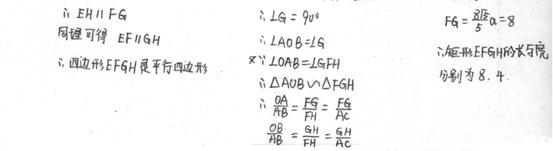 ∴ EH∥FG
同理可得 EF∥GH
∴四边形EFGH是平行四边形
∴∠G=90°
∴∠AOB=∠G
又∵∠OAB=∠GFH
∴△AOB∽△FGH
∴ OA/AB = FG/FH = FG/AC
OB/AB = GH/FH = GH/AC
FG = 8√5/5 a = 8
∴矩形EFGH的长与宽
分别为8.4.